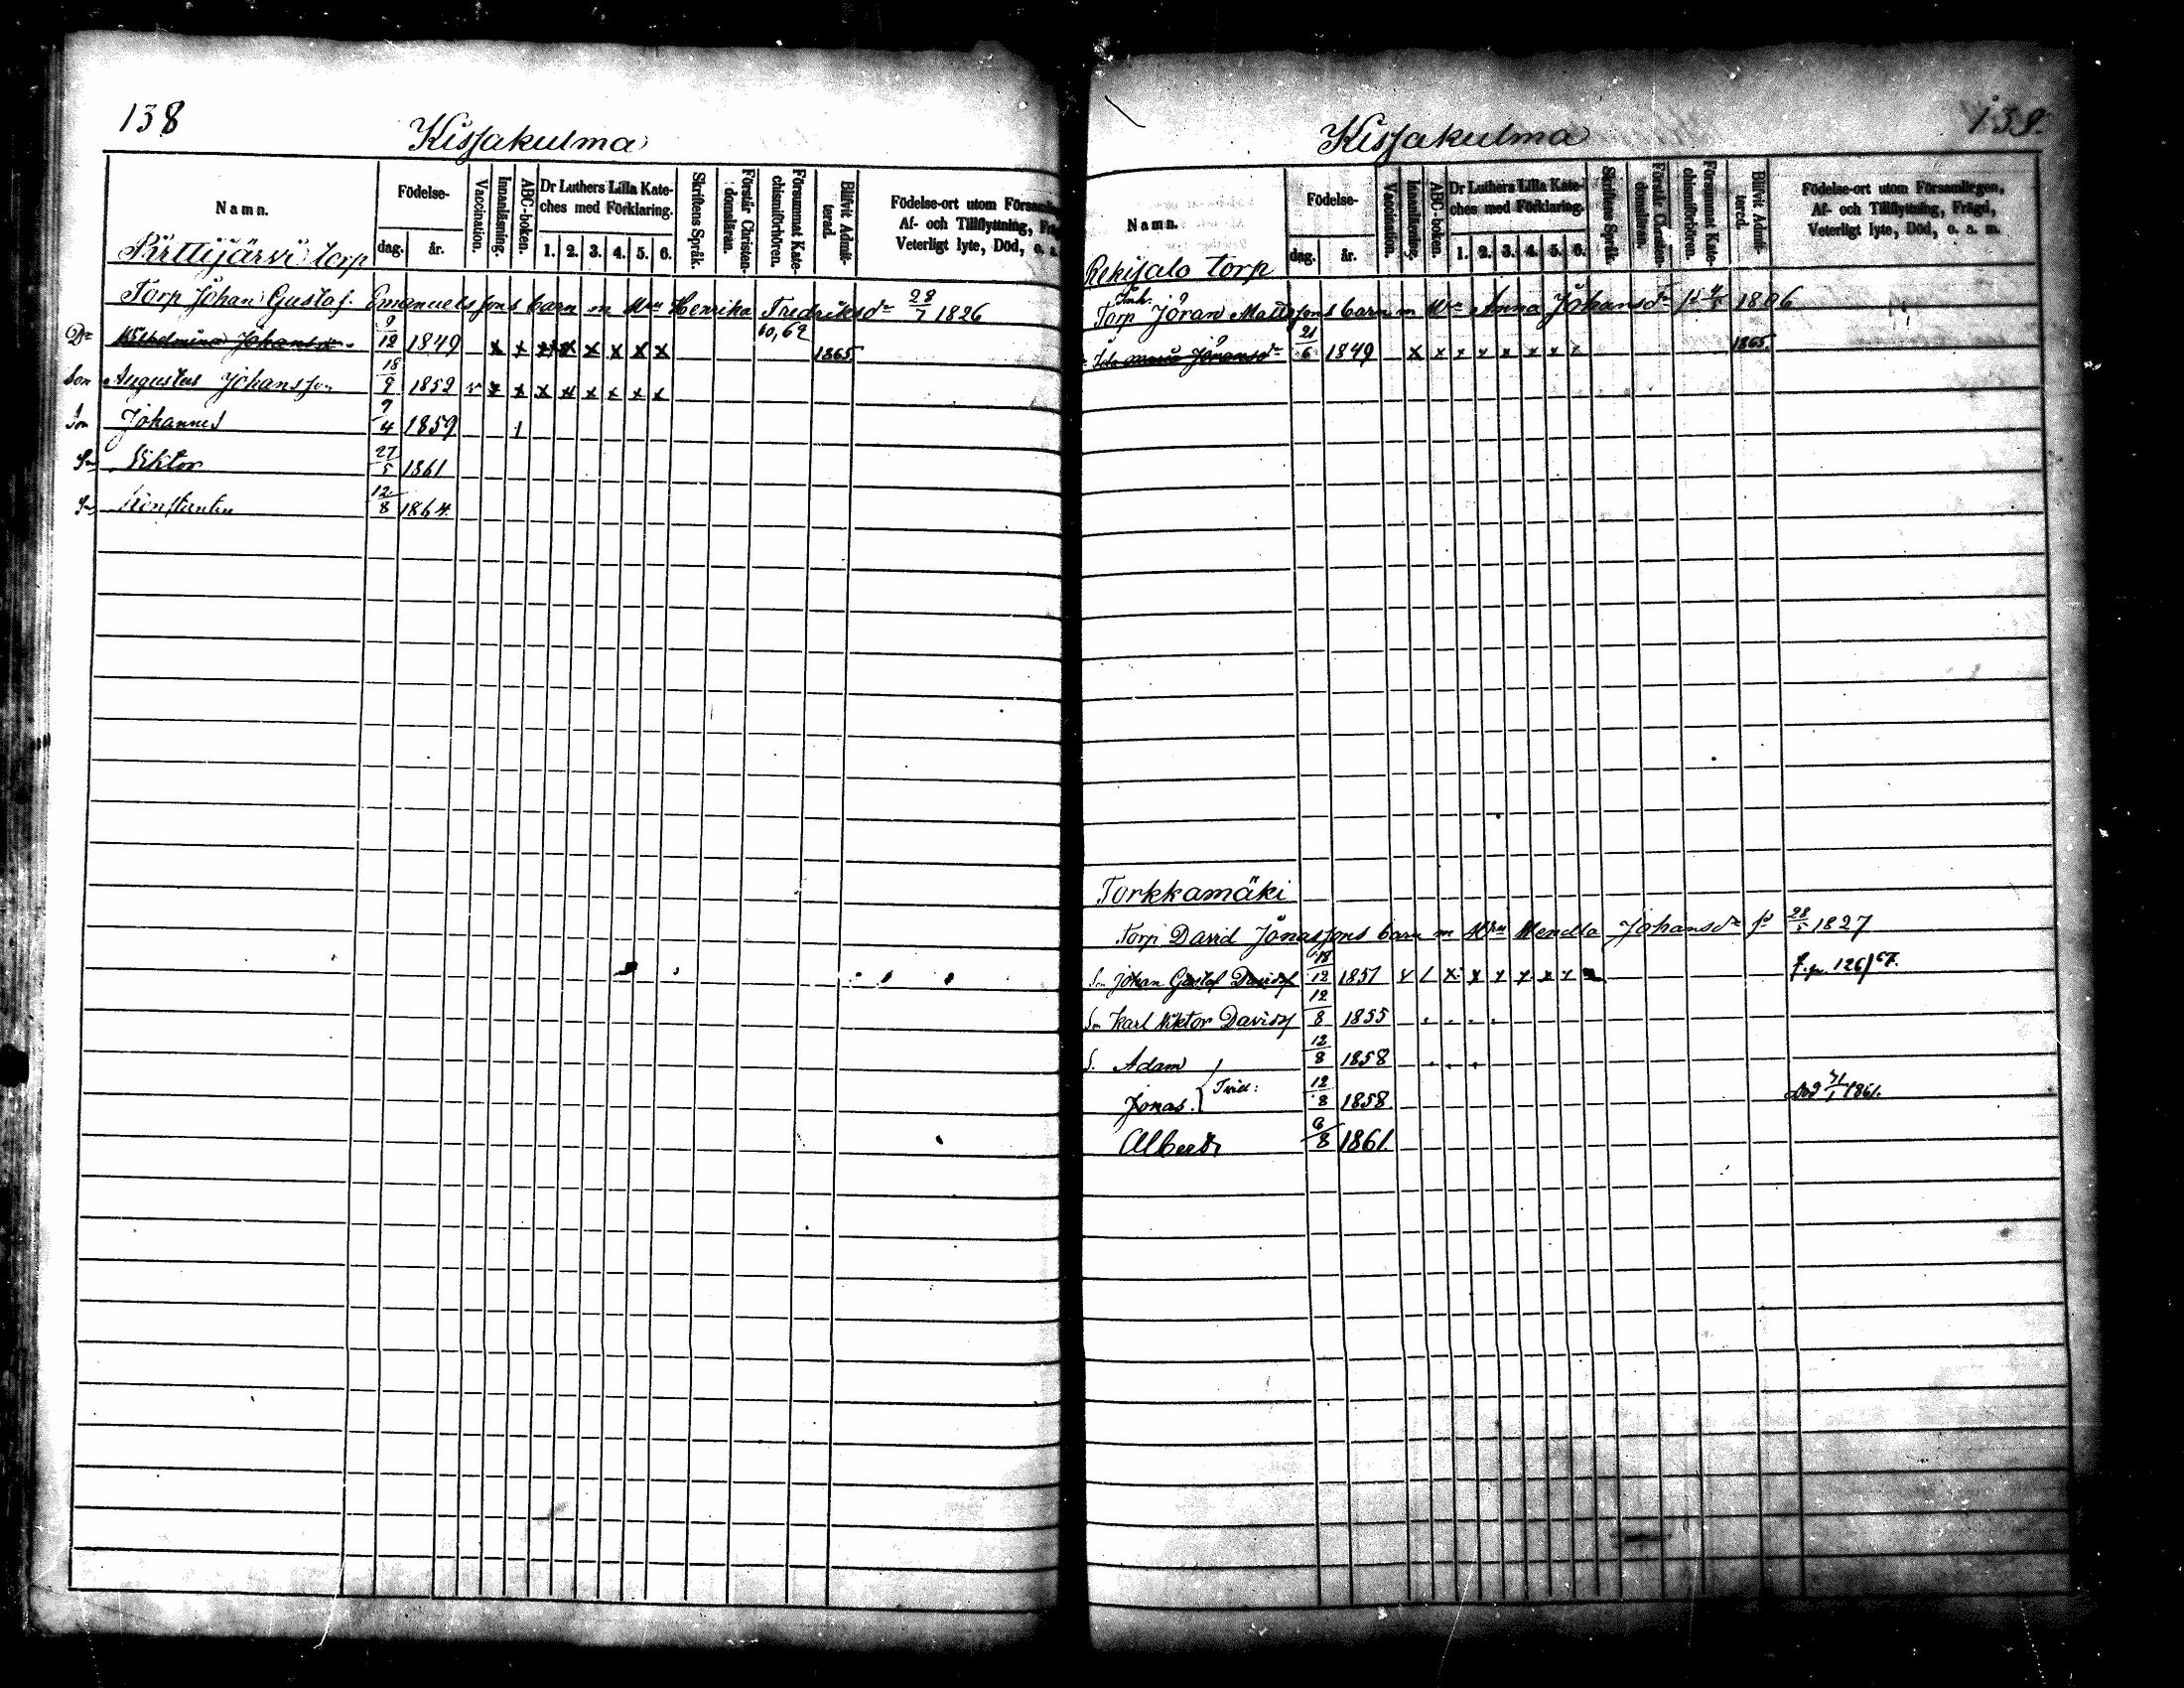 138
Kissakulma
Namn.
Födelse-
dag.
år.
Vaccination.
Innanläsning.
ABC-boken.
Dr Luthers Lilla Kate-
ches med Förklaring.
1. 2. 3. 4. 5. 6.
Skriftens Språk.
Förstår Christen-
domsläran.
Försummat Kate-
chismiförhören.
Blifvit Admit-
terad.
Födelse-ort utom Försam
Af- och Tillflyttning,
Veterligt lyte, Död, o. a.
Pirttijärvi torp
Torp Johan Gustaf Emanuelssons barn m Hu Henrika Fredriksdr 28/7 1826
Dr Wilhelmina Johansdr 9/12 1849 x x x x x x x x 60, 62 1865
Son Augustus Johansson 18/9 1852 v x x x x x x x x
Son Johannes 9/4 1859
Son Viktor 27/5 1861
Son Konstantin 12/8 1864
Kissakulma
139.
Namn.
Födelse-
dag.
år.
Vaccination.
Innanläsning.
ABC-boken.
Dr Luthers Lilla Kate-
ches med Förklaring.
1. 2. 3. 4. 5. 6.
Skriftens Språk.
Förstår Christen-
domsläran.
Försummat Kate-
chismiförhören.
Blifvit Admit-
terad.
Födelse-ort utom Församlingen,
Af- och Tillflyttning, Frägd,
Veterligt lyte, Död, o. a. m.
Rekisalo torp
Inh.
Torp Jöran Mattssons barn m Hu Anna Johansdr fd 1806
Jöransdr 21/6 1849 x x x x x x x x 1865.
Torkkamäki
Torp David Jonassons barn m Hu Wendla Johansdr fd 28/5 1827
Son Johan Gustaf Davidss 18/12 1851 126/67.
Son Karl Viktor Davidss 12/8 1855
S. Adam 12/8 1858
Jonas 12/8 1858 Död 1861.
Albert 6/8 1861.